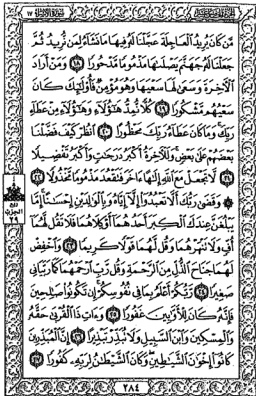 سورة الإسراء ١٧
مَّن كَانَ يُرِيدُ ٱلْعَاجِلَةَ عَجَّلْنَا لَهُۥ فِيهَا مَا نَشَآءُ لِمَن نُّرِيدُ ثُمَّ
جَعَلْنَا لَهُۥ جَهَنَّمَ يَصْلَىٰهَا مَذْمُومًا مَّدْحُورًا ١٨ وَمَنْ أَرَادَ
ٱلْءَاخِرَةَ وَسَعَىٰ لَهَا سَعْيَهَا وَهُوَ مُؤْمِنٌ فَأُو۟لَٰٓئِكَ كَانَ
سَعْيُهُم مَّشْكُورًا ١٩ كُلًّا نُّمِدُّ هَٰٓؤُلَآءِ وَهَٰٓؤُلَآءِ مِنْ عَطَآءِ
رَبِّكَ وَمَا كَانَ عَطَآءُ رَبِّكَ مَحْظُورًا ٢٠ ٱنظُرْ كَيْفَ فَضَّلْنَا
بَعْضَهُمْ عَلَىٰ بَعْضٍ وَلَلْءَاخِرَةُ أَكْبَرُ دَرَجَٰتٍ وَأَكْبَرُ تَفْضِيلًا
٢١ لَّا تَجْعَلْ مَعَ ٱللَّهِ إِلَٰهًا ءَاخَرَ فَتَقْعُدَ مَذْمُومًا مَّخْذُولًا ٢٢
۞ وَقَضَىٰ رَبُّكَ أَلَّا تَعْبُدُوٓا۟ إِلَّآ إِيَّاهُ وَبِٱلْوَٰلِدَيْنِ إِحْسَٰنًا إِمَّا
يَبْلُغَنَّ عِندَكَ ٱلْكِبَرَ أَحَدُهُمَآ أَوْ كِلَاهُمَا فَلَا تَقُل لَّهُمَآ
أُفٍّ وَلَا تَنْهَرْهُمَا وَقُل لَّهُمَا قَوْلًا كَرِيمًا ٢٣ وَٱخْفِضْ
لَهُمَا جَنَاحَ ٱلذُّلِّ مِنَ ٱلرَّحْمَةِ وَقُل رَّبِّ ٱرْحَمْهُمَا كَمَا رَبَّيَانِى
صَغِيرًا ٢٤ رَّبُّكُمْ أَعْلَمُ بِمَا فِى نُفُوسِكُمْ إِن تَكُونُوا۟ صَٰلِحِينَ
فَإِنَّهُۥ كَانَ لِلْأَوَّٰبِينَ غَفُورًا ٢٥ وَءَاتِ ذَا ٱلْقُرْبَىٰ حَقَّهُۥ
وَٱلْمِسْكِينَ وَٱبْنَ ٱلسَّبِيلِ وَلَا تُبَذِّرْ تَبْذِيرًا ٢٦ إِنَّ ٱلْمُبَذِّرِينَ
كَانُوٓا۟ إِخْوَٰنَ ٱلشَّيَٰطِينِ وَكَانَ ٱلشَّيْطَٰنُ لِرَبِّهِۦ كَفُورًا ٢٧
ربع
الحزب
٢٩
٢٨٤